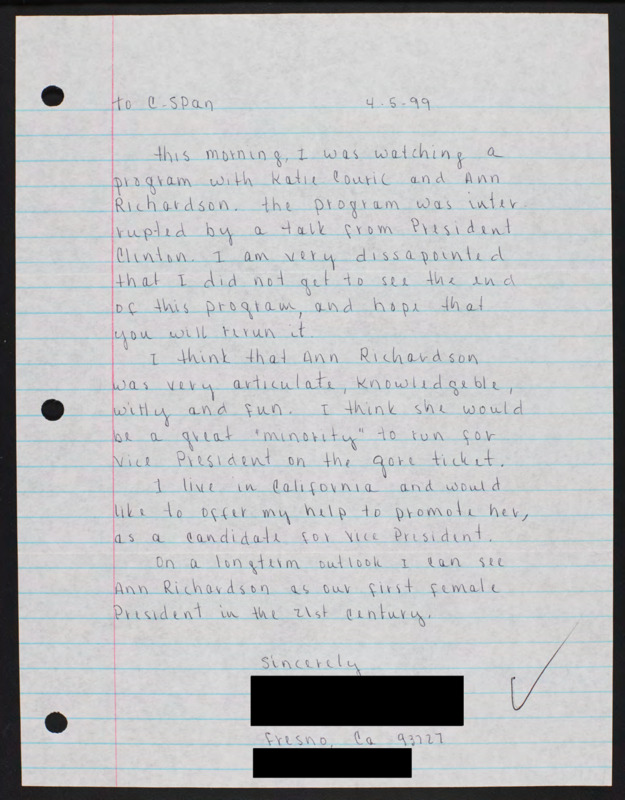 to C-SPan 4-5-99
this morning, I was watching a
program with Katie Couric and Ann
Richardson. the program was inter
rupted by a talk from President
Clinton. I am very dissapointed
that I did not get to see the end
of this program, and hope that
you will rerun it.
I think that Ann Richardson
was very articulate, knowledgeble,
witty and fun. I think she would
be a great "minority" to run for
Vice President on the gore ticket.
I live in California and would
like to offer my help to promote her,
as a candidate for Vice President.
On a longterm outlook I can see
Ann Richardson as our first female
President in the 21st century.
Sincerely
Fresno, Ca 93727